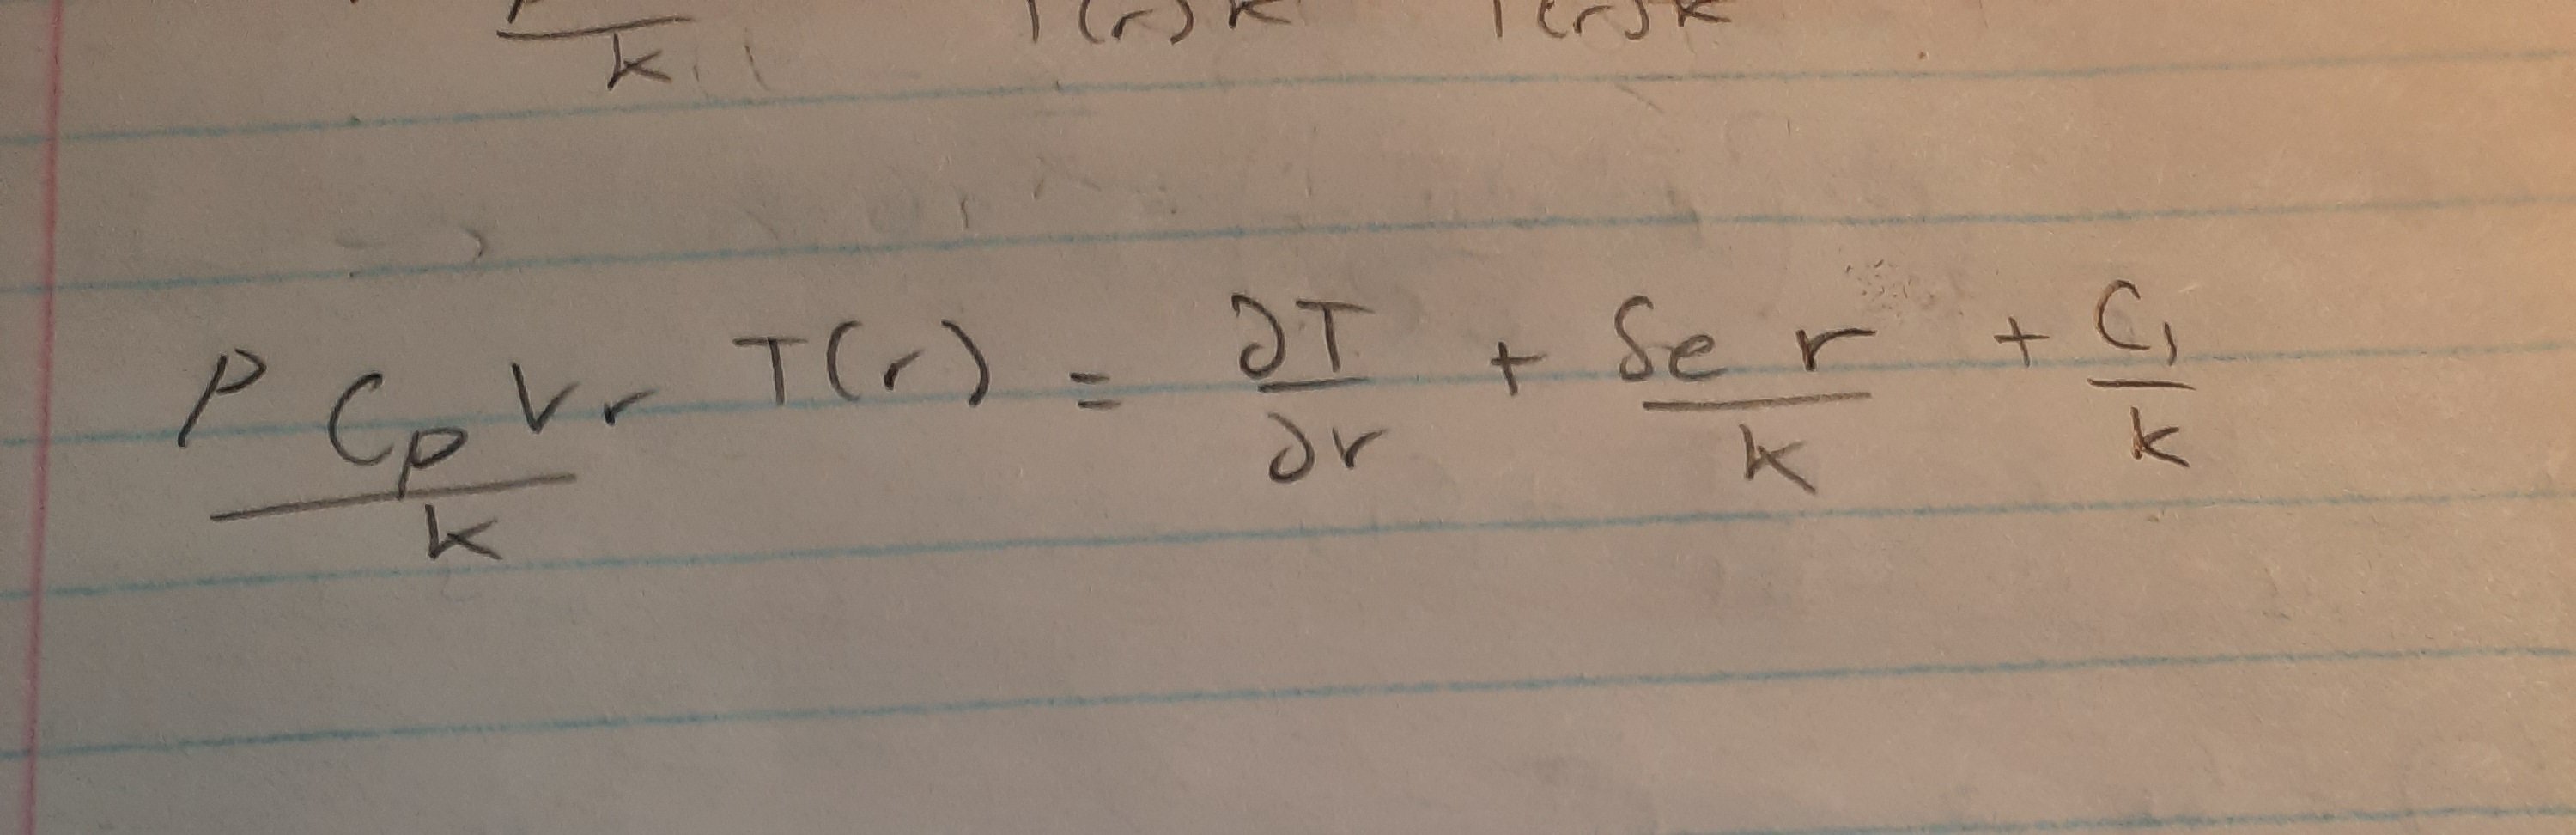 k T(r) k T(r) k
ρ C_p V_r / k T(r) = ∂T/∂r + Se r / k + C_1 / k